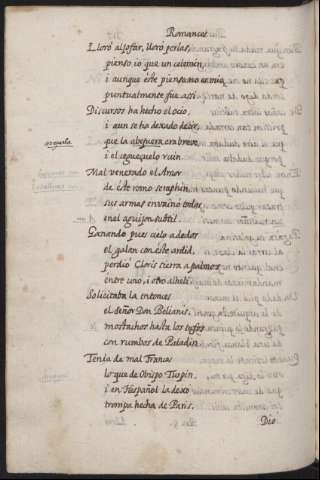 Romances
Lloró aljofar, lloró perlas,
pienso io que un celemin,
i aunque este pienso no es mio,
puntualmente fue assi.
Discursos ha hecho el ocio,
i aun se ha dexado decir,
que la abejuera en breve,
i el çeguequelo ruin
Mal venerado el Amor
de este romo seraphin
sus armas envainò todas
en el aguijon subtil.
Ganando pues cielo a dedos
el galan con este ardid,
perdiò Cloris tierra a palmos
entre uno, i otro alheli.
Solicitaba la entonces
el señor Don Belianis,
mostachos hasta los tufos
con rumbos de Paladin.
Tenia de mal Frances
lo que de Obispo Turpin,
i en Hespañol la dexó
trompa hecha de Paris.
Dió